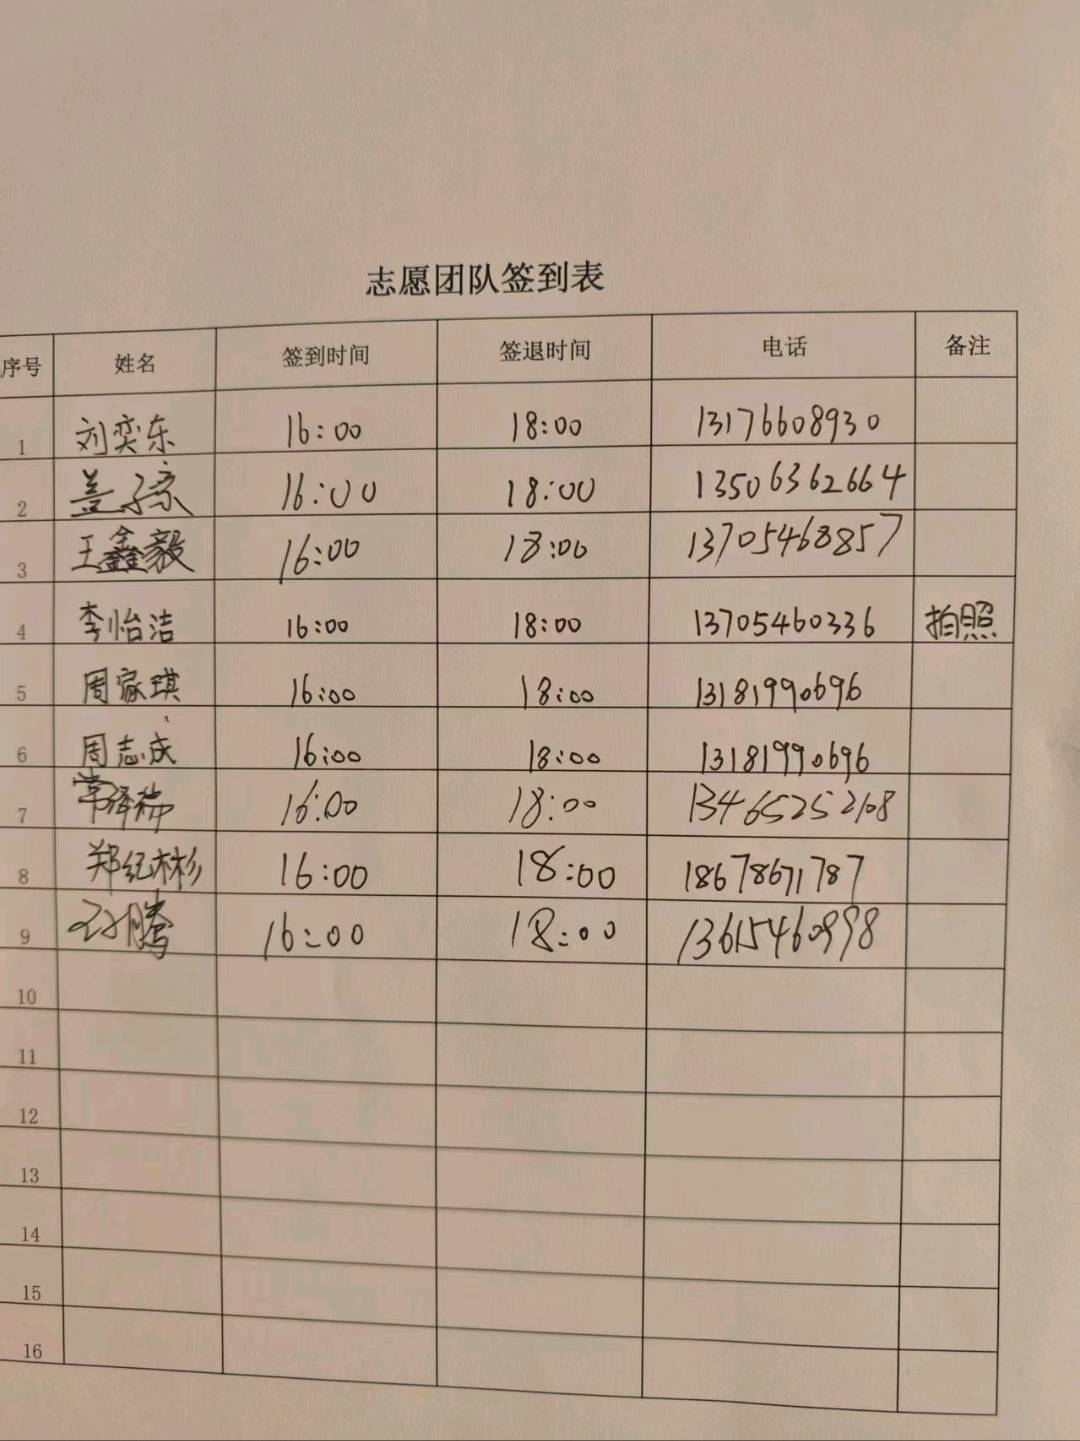 志愿团队签到表
序号 姓名 签到时间 签退时间 电话 备注
1 刘奕东 16:00 18:00 13176608930
2 16:00 18:00 13506362664
3 王鑫毅 16:00 18:00 13705468857
4 李怡洁 16:00 18:00 13705460336 拍照
5 周家琪 16:00 18:00 13181990696
6 周志成 16:00 18:00 13181990696
7 16:00 18:00 13465252108
8 郑纪彬 16:00 18:00 18678671787
9 16:00 18:00 13615460998
10
11
12
13
14
15
16